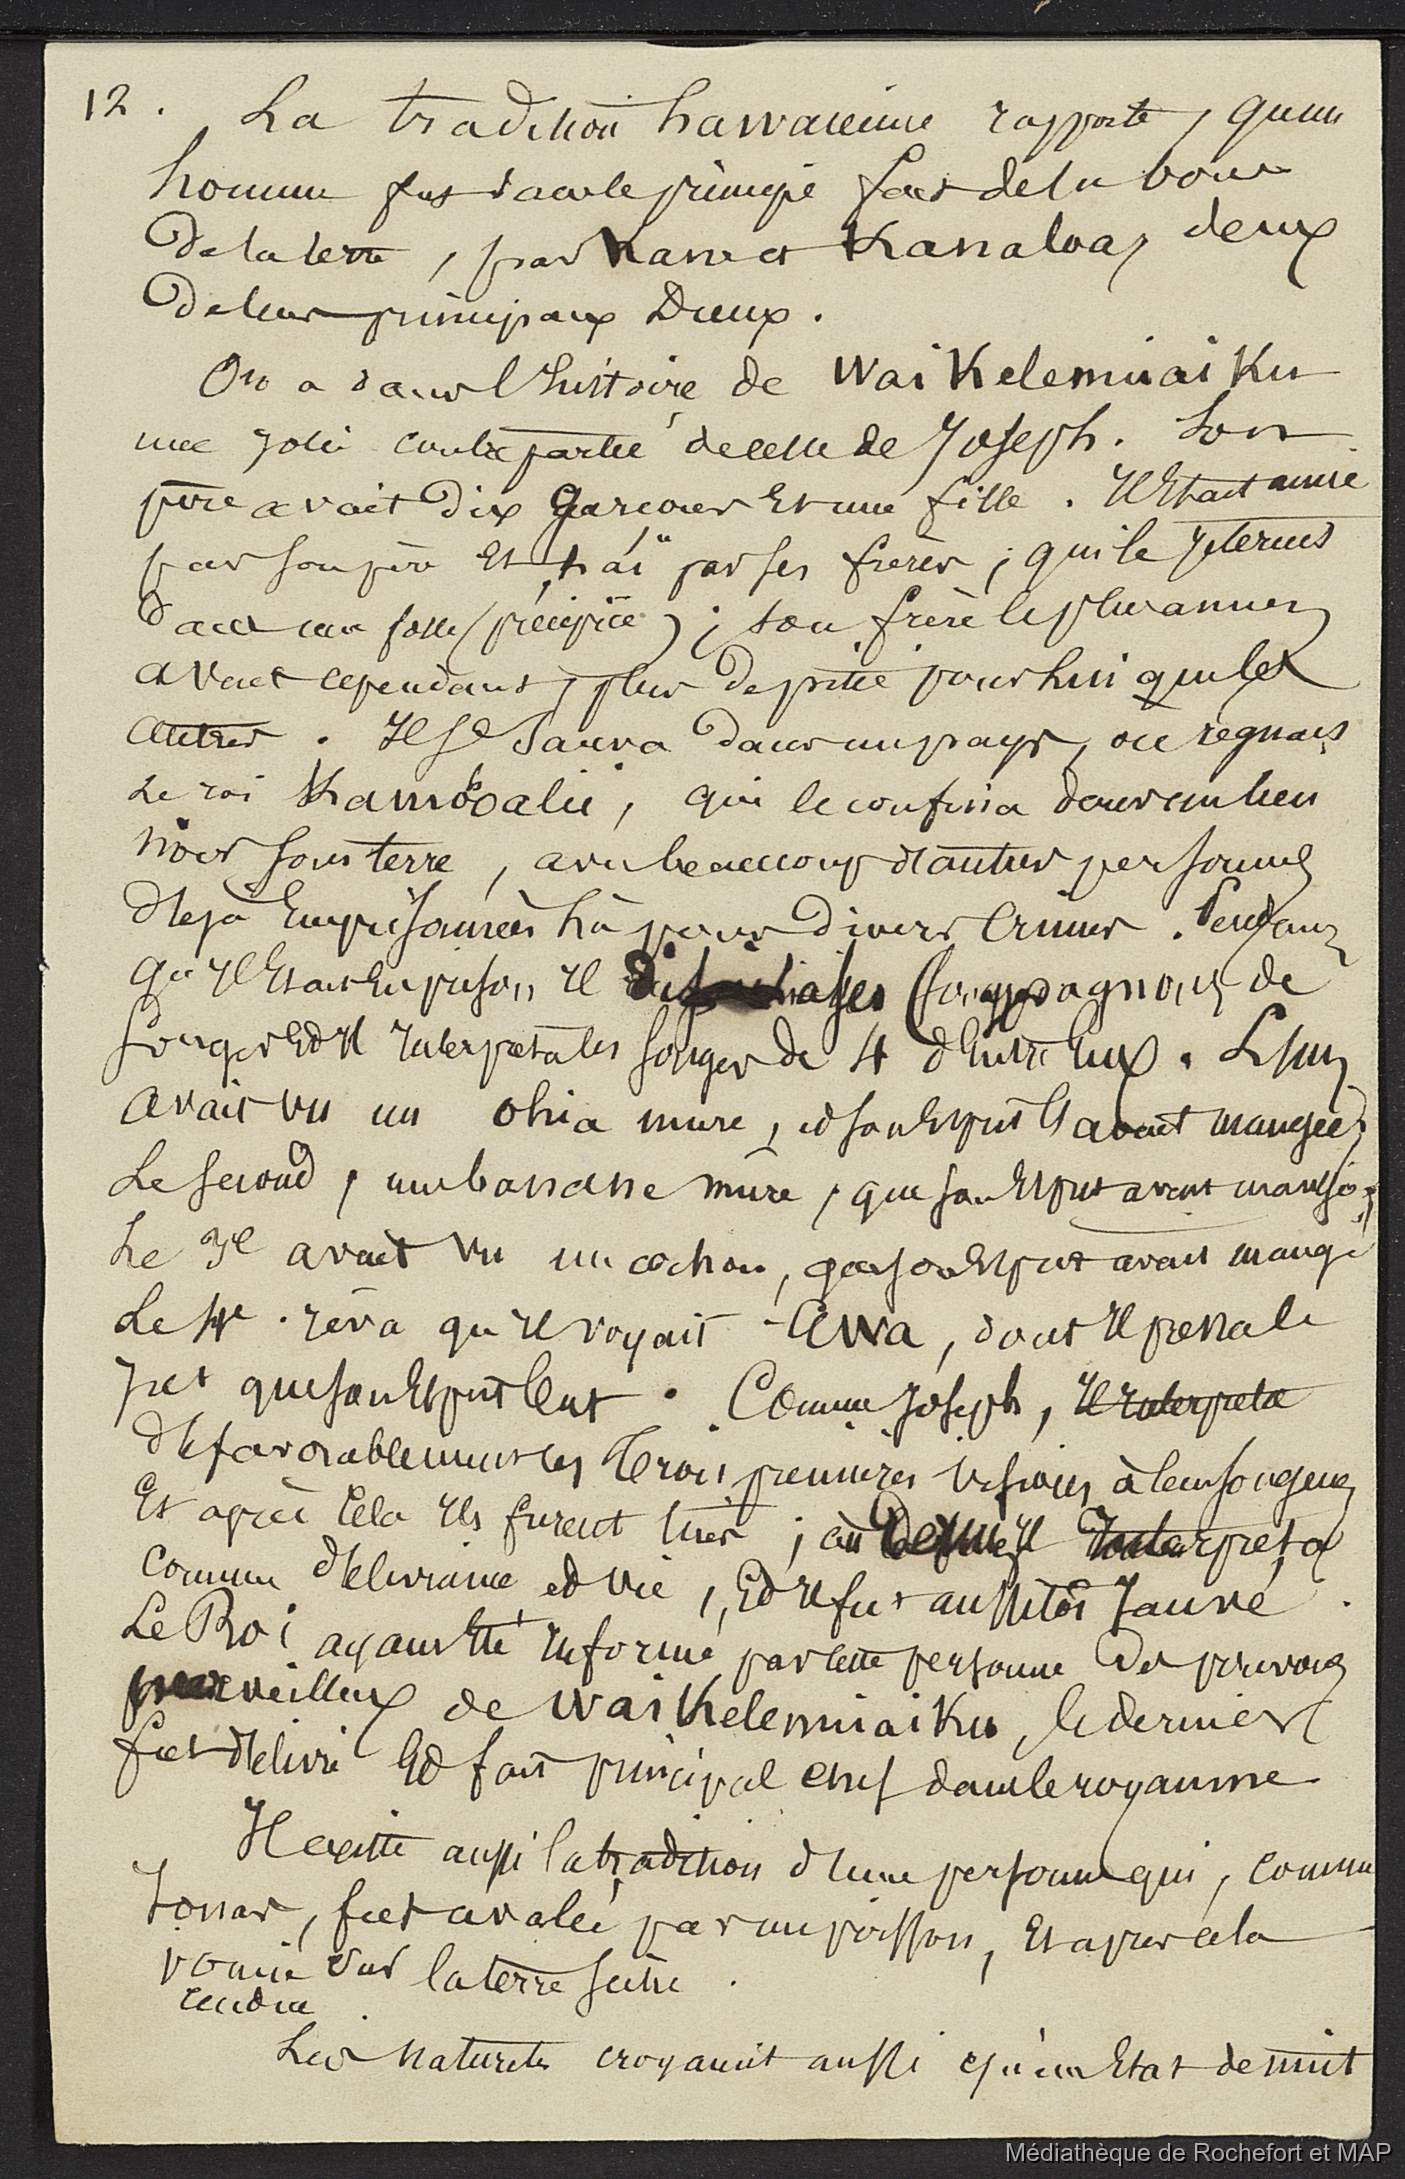 12. La tradition hawaïenne rapporte, qu'un
homme fut dans le principe fait de la boue
de la terre, par Kane et Kanaloa, deux
de leurs principaux Dieux.
On a dans l'histoire de Waikelemiaiku
une jolie contrepartie de celle de Joseph. Son
père avait dix garçons et une fille. Il était aimé
par son père et haï par ses frères, qui le jeterent
dans une fosse (précipice); son frère le plus ainné
avait cependant, plus de pitié pour lui que les
autres. Il se sauva dans un pays, où régnait
le roi Kamohoalii, qui le confina dans un lieu
noir sous terre, avec beaucoup d'autres personnes
déjà emprisonnées là pour divers crimes. Pendant
qu'il était en prison il dit à ses compagnons de
songer et il interpreta les songes de 4 d'entre eux. L'un
avait vu un ohia mure, et son esprit l'avait mangée;
Le second, une banane mûre, que son esprit avait mangé;
Le 3e avait vu un cochon, que son esprit avait mangé
Le 4e rêva qu'il voyait l'awa, dont il pressa le
jus que son esprit but. Comme Joseph, il interpreta
défavorablement les trois premières visions à leurs songeurs
et après cela ils furent tués; au dernier il interpreta
comme délivrance et vie, et il fut aussitôt sauvé.
Le Roi ayant été informé par cette personne des pouvoirs
merveilleux de Waikelemiaiku, le dernier
fut délivré et fait principal chef dans le royaume
Il existe aussi la tradition d'une personne qui, comme
Jonas, fut avalée par un poisson, et après cela
vomie sur la terre sèche.
rendue
Les naturels croyaient aussi qu'un état de nuit